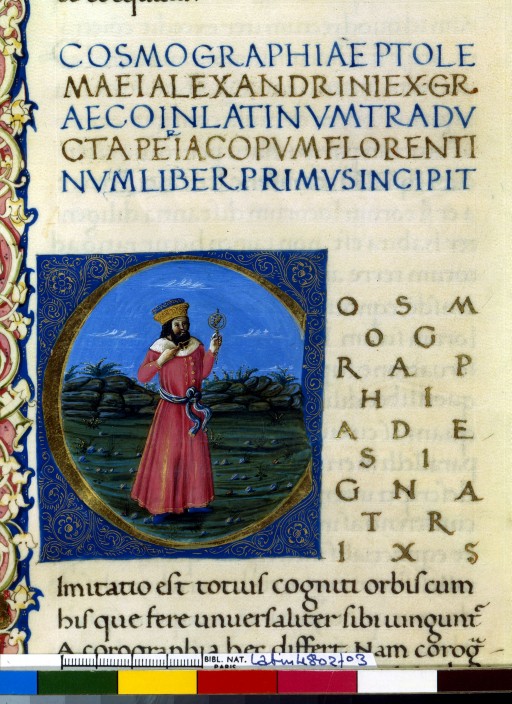 COSMOGRAPHIAE PTOLE
MAEI ALEXANDRINI EX GR
AECO IN LATINVM TRADV
CTA PER IACOPVM FLORENTI
NVM LIBER PRIMVS INCIPIT
O S M
O G
R A P
H I
A D E
S I
G N A
T R
I X S
Imitatio est totius cogniti orbis cum
his que fere universaliter sibi iungunt̃
A corographia hec differt. Nam corog̃
BIBL. NAT.
PARIS
Latin 4802 f 03